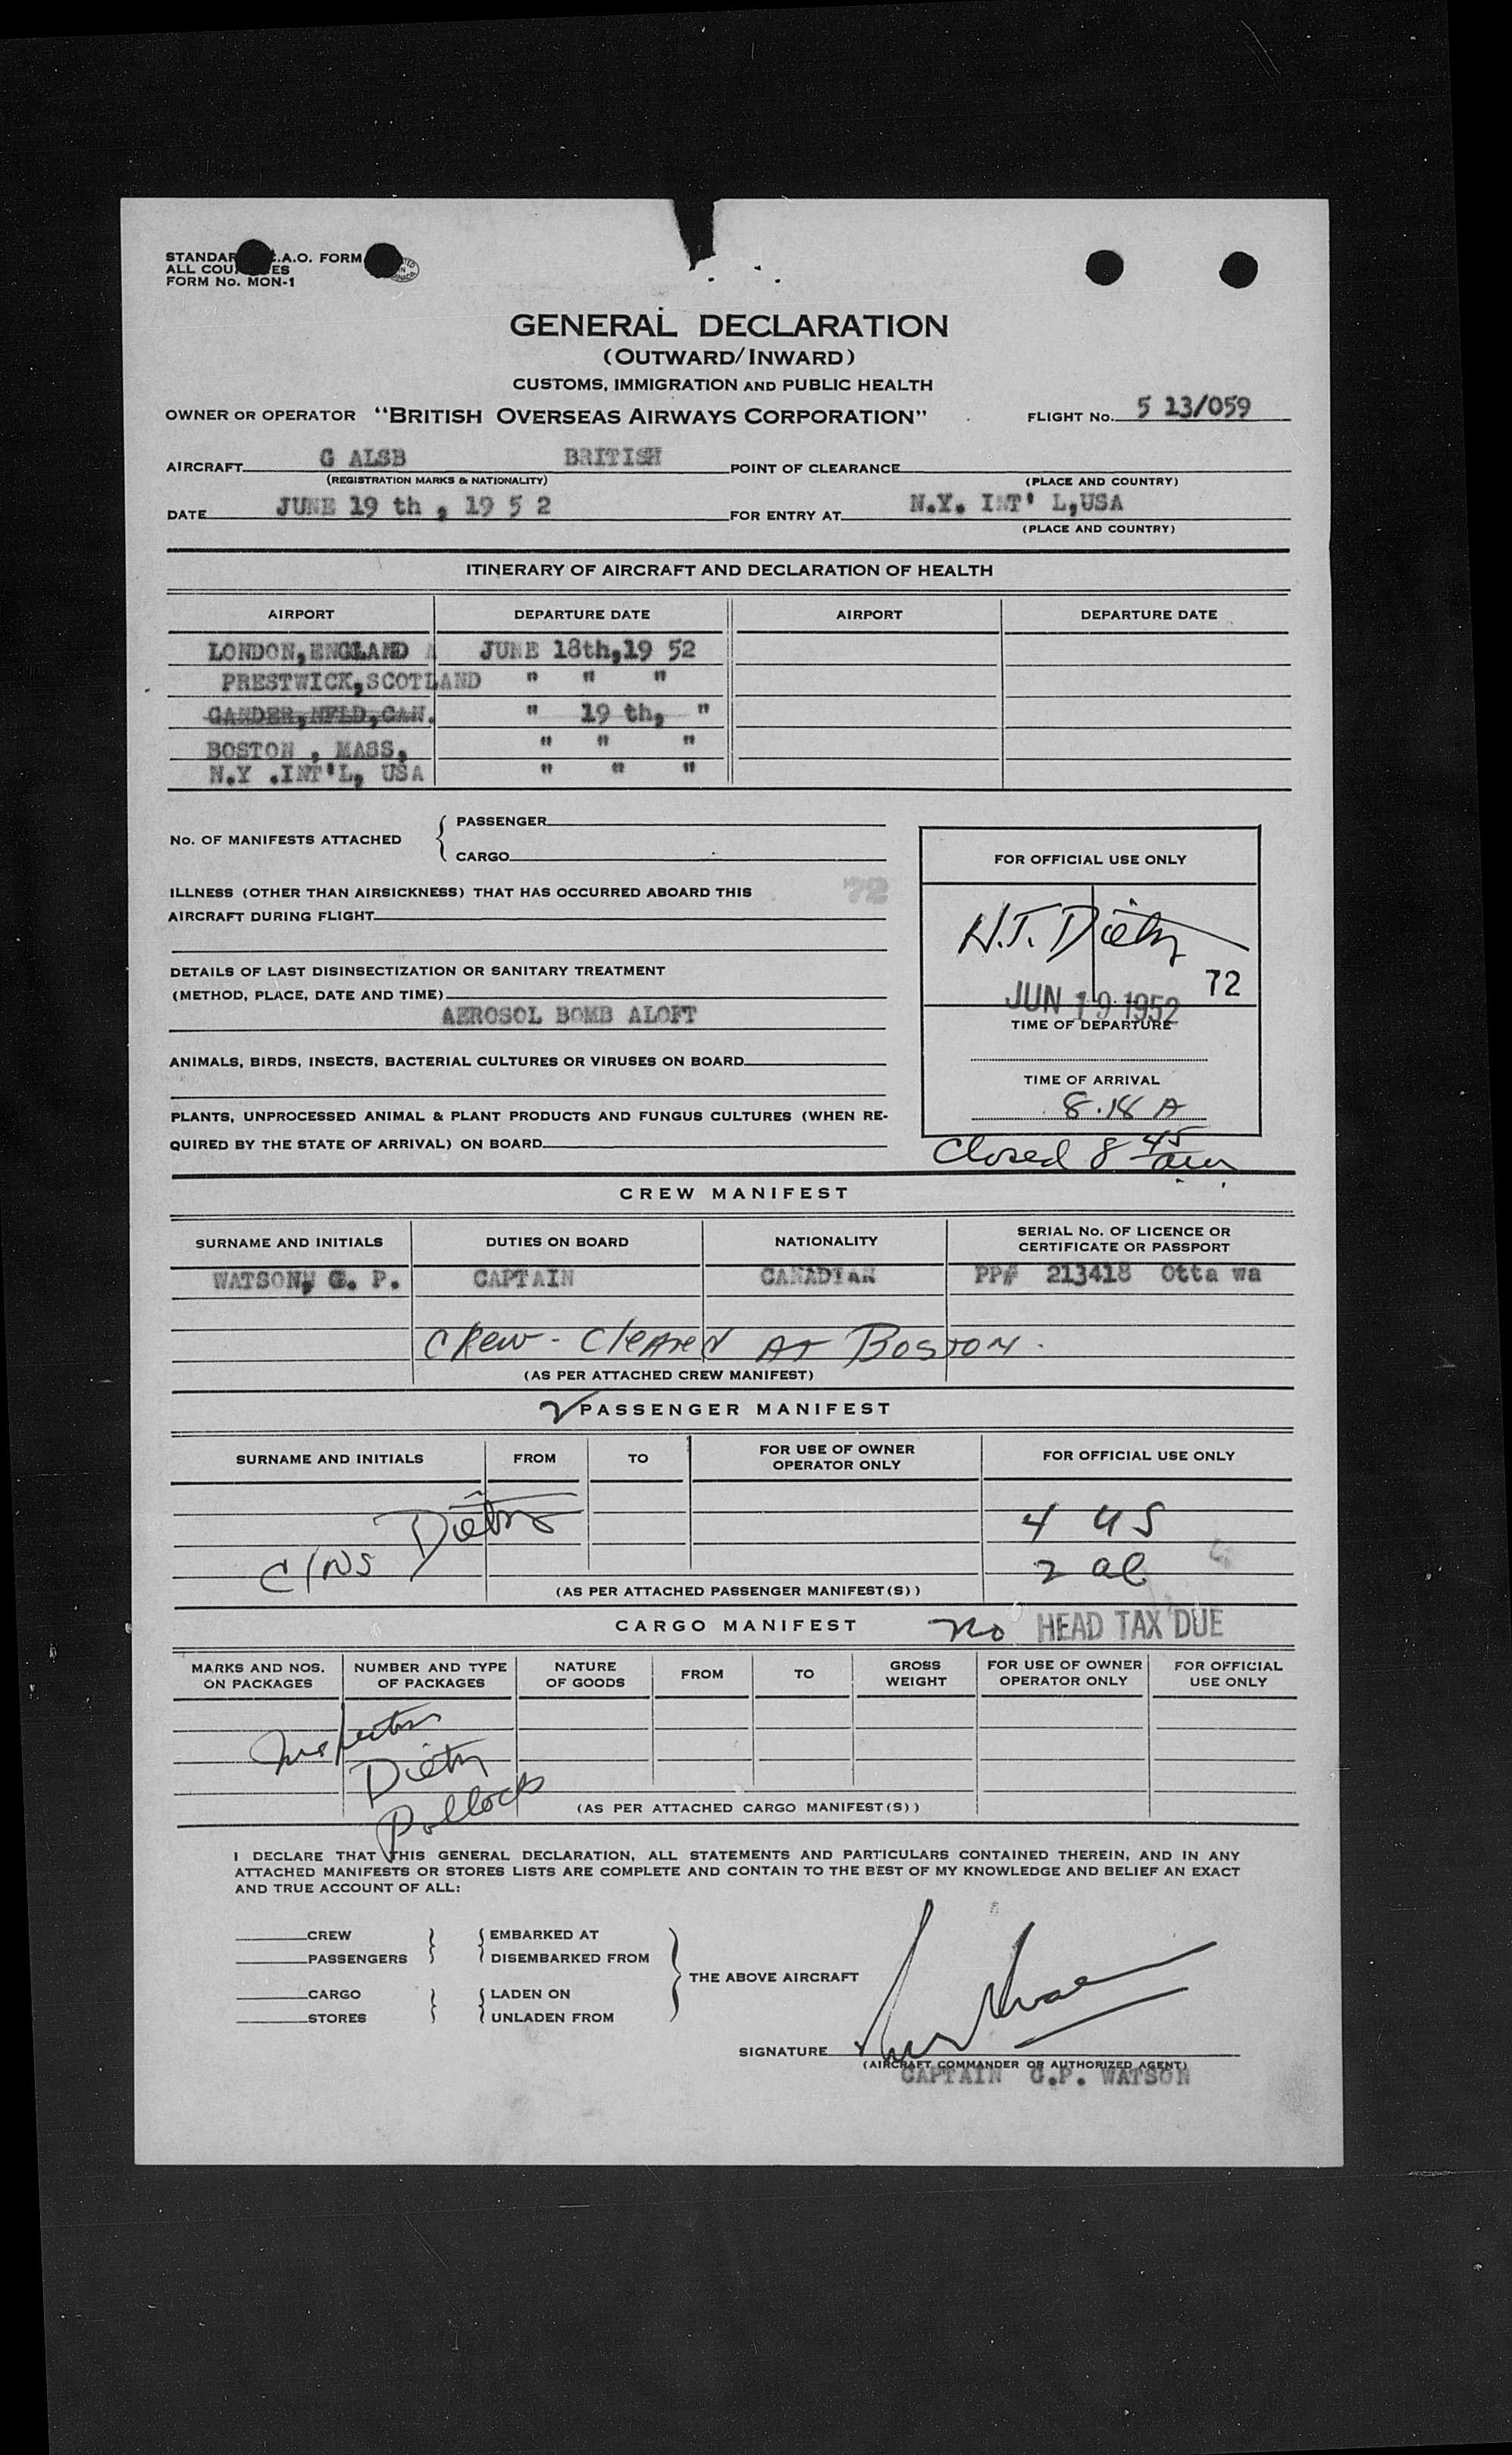 STANDAR .A.O. FORM
ALL COU ES
FORM No. MON-1
GENERAL DECLARATION
(OUTWARD/INWARD)
CUSTOMS, IMMIGRATION AND PUBLIC HEALTH
OWNER OR OPERATOR "BRITISH OVERSEAS AIRWAYS CORPORATION" FLIGHT No. 5 13/059
AIRCRAFT G ALSB BRITISH POINT OF CLEARANCE
(REGISTRATION MARKS & NATIONALITY) (PLACE AND COUNTRY)
DATE JUNE 19 th , 19 5 2 FOR ENTRY AT N.Y. INT' L,USA
(PLACE AND COUNTRY)
ITINERARY OF AIRCRAFT AND DECLARATION OF HEALTH
AIRPORT DEPARTURE DATE AIRPORT DEPARTURE DATE
LONDON,ENGLAND JUNE 18th,19 52
PRESTWICK,SCOTLAND " " "
GANDER,NFLD,CAN. " 19 th, "
BOSTON , MASS, " " "
N.Y .INT'L, USA " " "
No. OF MANIFESTS ATTACHED { PASSENGER
CARGO
FOR OFFICIAL USE ONLY
ILLNESS (OTHER THAN AIRSICKNESS) THAT HAS OCCURRED ABOARD THIS 72
AIRCRAFT DURING FLIGHT
H.J. Dietz
DETAILS OF LAST DISINSECTIZATION OR SANITARY TREATMENT
(METHOD, PLACE, DATE AND TIME)
72
JUN 19 1952
AEROSOL BOMB ALOFT
TIME OF DEPARTURE
ANIMALS, BIRDS, INSECTS, BACTERIAL CULTURES OR VIRUSES ON BOARD
TIME OF ARRIVAL
8.18 A
PLANTS, UNPROCESSED ANIMAL & PLANT PRODUCTS AND FUNGUS CULTURES (WHEN RE-
QUIRED BY THE STATE OF ARRIVAL) ON BOARD
Closed 8 45/am
CREW MANIFEST
SURNAME AND INITIALS DUTIES ON BOARD NATIONALITY SERIAL No. OF LICENCE OR CERTIFICATE OR PASSPORT
WATSON, G. P. CAPTAIN CANADIAN PP# 213418 Otta wa
Crew - Cleared At Boston.
(AS PER ATTACHED CREW MANIFEST)
PASSENGER MANIFEST
SURNAME AND INITIALS FROM TO FOR USE OF OWNER OPERATOR ONLY FOR OFFICIAL USE ONLY
Dietz 4 US
C/NS 2 al
(AS PER ATTACHED PASSENGER MANIFEST(S))
CARGO MANIFEST No HEAD TAX DUE
MARKS AND NOS. ON PACKAGES NUMBER AND TYPE OF PACKAGES NATURE OF GOODS FROM TO GROSS WEIGHT FOR USE OF OWNER OPERATOR ONLY FOR OFFICIAL USE ONLY
Inspectors
Dietz
Pollock
(AS PER ATTACHED CARGO MANIFEST(S))
I DECLARE THAT THIS GENERAL DECLARATION, ALL STATEMENTS AND PARTICULARS CONTAINED THEREIN, AND IN ANY
ATTACHED MANIFESTS OR STORES LISTS ARE COMPLETE AND CONTAIN TO THE BEST OF MY KNOWLEDGE AND BELIEF AN EXACT
AND TRUE ACCOUNT OF ALL:
CREW EMBARKED AT
PASSENGERS DISEMBARKED FROM
THE ABOVE AIRCRAFT
CARGO LADEN ON
STORES UNLADEN FROM
SIGNATURE
(AIRCRAFT COMMANDER OR AUTHORIZED AGENT)
CAPTAIN G.P. WATSON